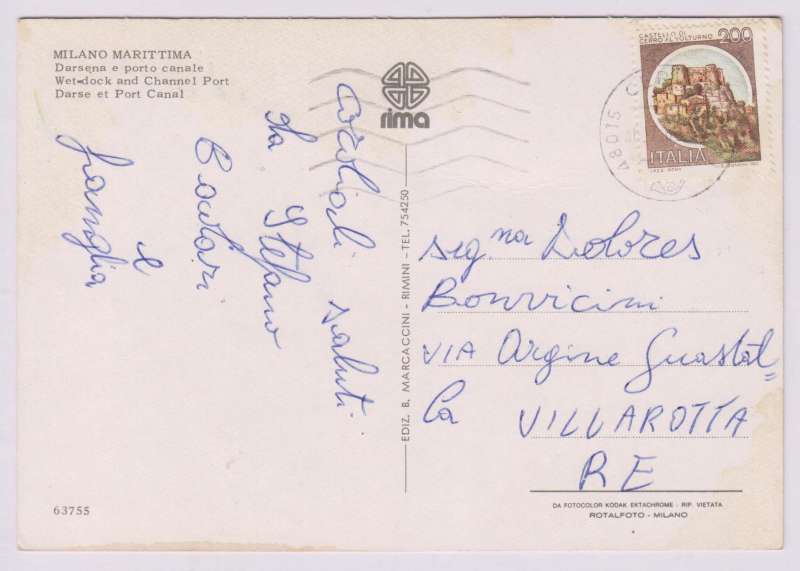 MILANO MARITTIMA
Darsena e porto canale
Wet-dock and Channel Port
Darse et Port Canal
rima
CASTELLO DI
CERRO AL VOLTURNO
200
ITALIA
48015 C
cordiali saluti
da Stefano
e
famiglia
EDIZ. B. MARCACCINI - RIMINI - TEL. 754250
Sig.na Dolores
Bonvicini
VIA Argine Guastal=
la VILLAROTTA
RE
63755
DA FOTOCOLOR KODAK EKTACHROME - RIP. VIETATA
ROTALFOTO - MILANO